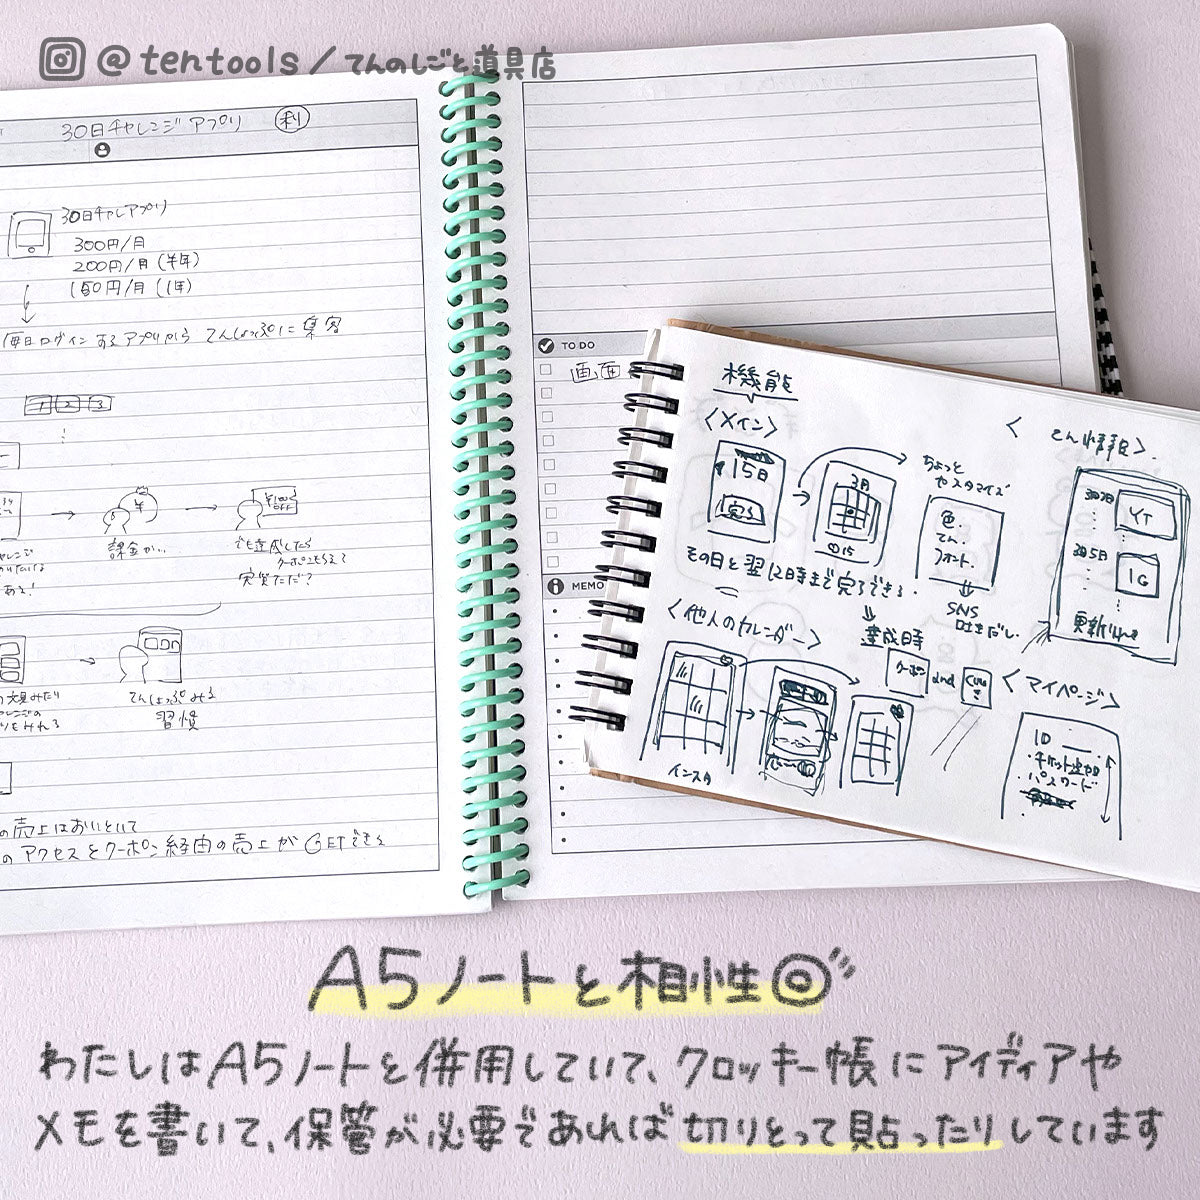 @tentools/てんのしごと道具店
30日チャレンジアプリ 利
30日チャレアプリ
300円/月
200円/月(半年)
150円/月(1年)
毎日ログインするアプリから てんしょっぷに集客
1 2 3
課金が…
¥100 OFF
でも達成したら
クーポンもらえて
実質ただ?
てんしょっぷみる
習慣
の売上はおいといて
のアクセスとクーポン経由の売上がGETできる
TO DO
画面
MEMO
機能
〈メイン〉
15日
完了
3月
ちょっと
カスタマイズ
色.
てん.
フォント.
SNS
吐きだし.
その日と翌12時まで完了できる.
達成時
クーポン and
〈てん情報〉
YT
3月5日
IG
〈他人のカレンダー〉
インスタ
〈マイページ〉
ID
・チケット追加
・パスワード
A5ノートと相性◎
わたしはA5ノートと併用していて、クロッキー帳にアイディアや
メモを書いて、保管が必要であれば切りとって貼ったりしています